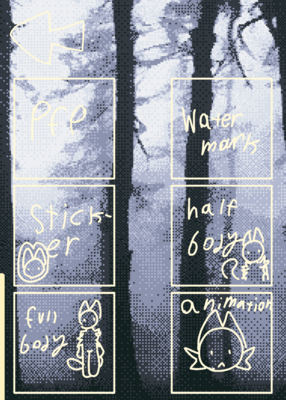 Pfp
Water
marks
Stick-
er
half
body
full
body
animation